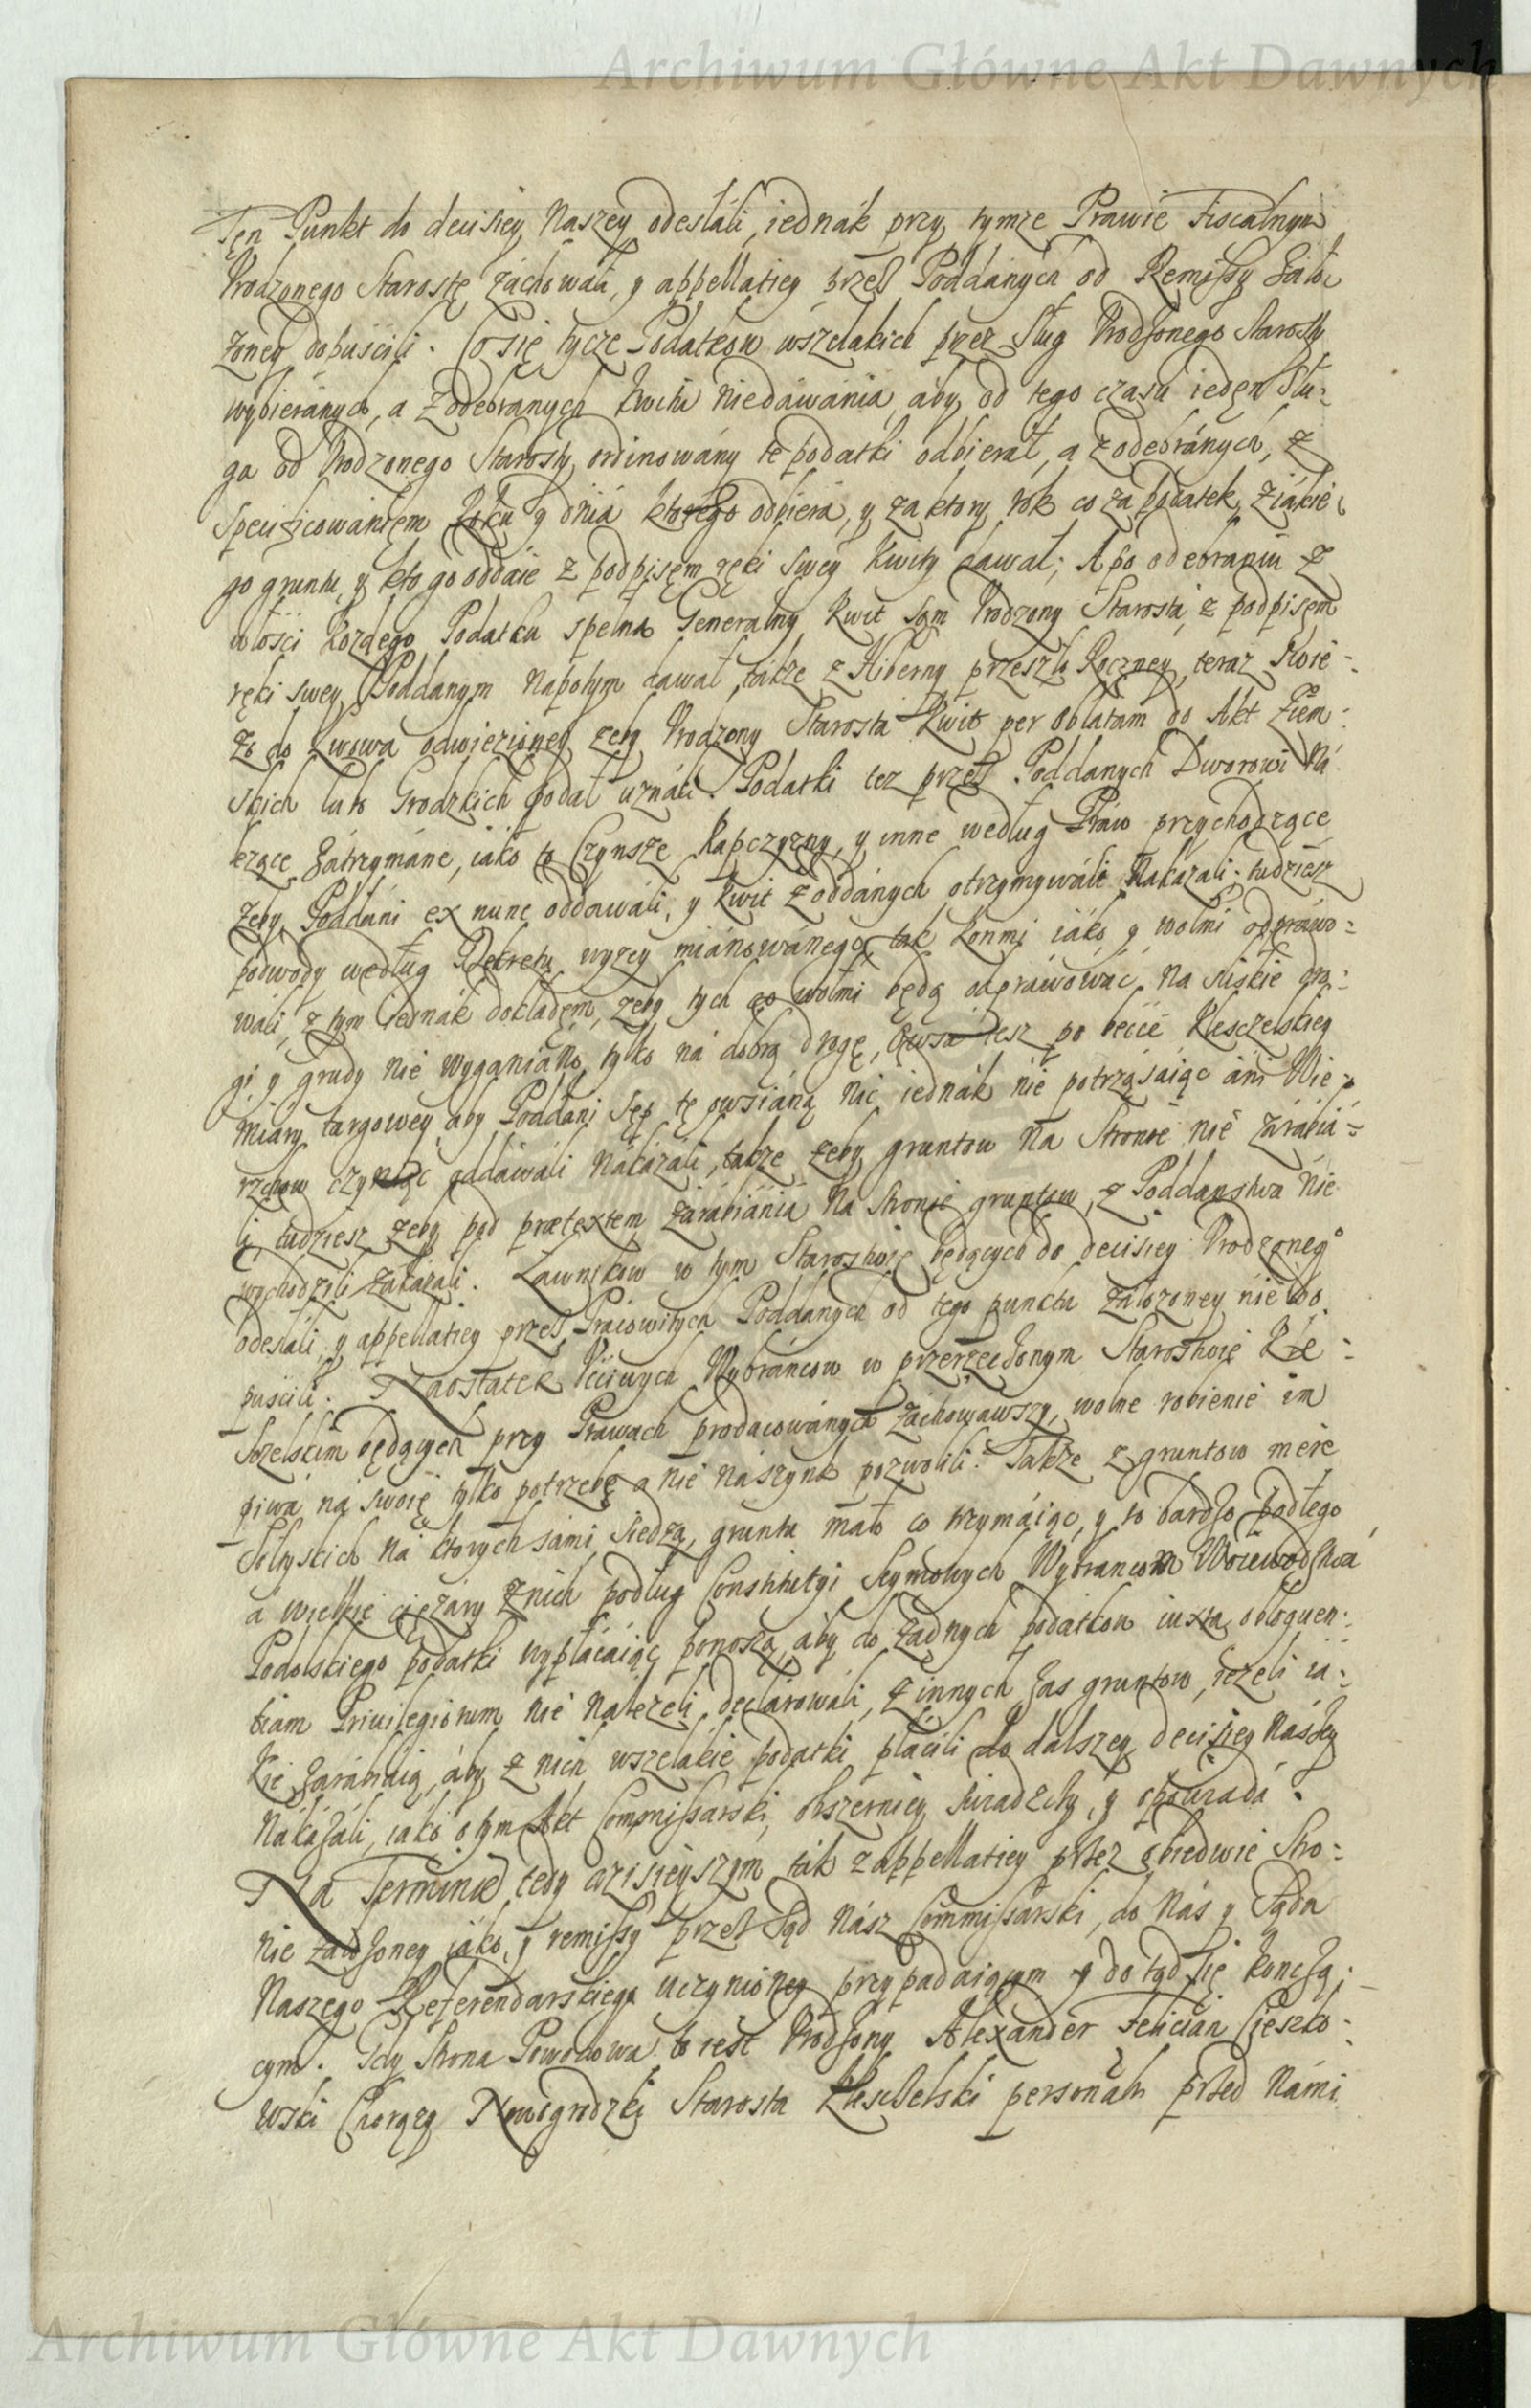 Archiwum Główne Akt Dawnych
Ten Punkt do decisiey Naszey odesłáli, iednák przy tymże Prawie Fiscalnym
Vrodzonego Starostę záchowali, y appellatiey przez Poddánych od Remissy záło-
żoney dopuścili. Co się tycze Podatkow wszelakich przez Sług Vrodzonego Starosty
wybieránych, a z odebranych kwitu niedáwánia, áby od tego czasu ieden Słu-
ga od Vrodzonego Starosty ordinowány te podatki odbierał, a z odebránych, z
specificowaniem Roku y dniá ktorego odbiera, y za ktory rok co za podatek, z iákie-
go gruntu, y kto go oddáie z podpisem ręki swey kwity dawał; A po odebraniu z
włości kożdego Podatku spełna Generalny kwit sam Vrodzony Starostá, z podpisem
ręki swey Poddanym napotym dawał, tákże z Hiberny przeszło Roczney, teraz świe-
żo do Lwowa odwiezioney żeby Vrodzony Starostá kwit per oblatam do Akt Ziem-
skich lub Grodzkich podał uználi. Podatki też przez Poddanych Dworowi Na
leżące zátrzymáne, iáko to Czynsze, Kapczyzny, y inne według Práw przychodzące
żeby Poddáni ex nunc oddawáli, y kwit z oddánych otrzymywáli Nakázali; tudziesz
podwody według Dekretu wyżey miánowánego, tak konmi iáko y wołmi odpráwo-
wáli, z tym iednák dokładem, żeby tych co wołmi będą odpráwowáć, na sliskie dro-
gi y grudy nie wyganiáno, tylko ná dobrą drogę, Owsa tesz po beczce Klesczelskiey
Miáry targowey aby Poddáni Sęp tę owsiáną nic iednák nie potrząsáiąc áni Wie-
rzchow czyniąc oddáwáli nákázáli, tákże żeby gruntow Na Stronie nie zárabiá-
li, tudziesz żeby pod prætextem zárabiániá Na stronie gruntow, z Poddanstwa nie
wychodzili zakázali. Ławnikow w tym Starostwie będących do decisiey Vrodzonego
odesłáli, y appellatiey przez Prácowitych Poddanych od tego punctu záłożoney nie do-
puścili. Naostátek Vczciwych Wybráncow w przerzeczonym Starostwie Kle-
sczelskim będących przy Prawach produCowánych záchowawszy, wolne robienie im
piwa ná swoię tylko potrzebę a nie ná szynk pozwolili. Tákże z gruntow mere
Sołtyskich ná ktorych sámi siedzą, gruntu máło co trzymáiąc, y to bardzo podłego
á wielkie ciężáry z nich podług Constitutyi Seymowych Wybrancom Woiewodstwa
Podolskiego podatki wypłácáiąc ponoszą, aby do żadnych podatkow iuxta obloquen-
tiam Priuilegiorum nie náleżeli declárowáli, z innych zas gruntow, ieżeli iá-
kie zarábiáią, áby z nich wszelákie podatki płácili do dalszey decisiey nászey
nákázáli, iáko o tym Akt Commissarski, obszerniey świadczy, y opowiada.
Na Terminie tedy dzisieyszym, ták z appellatiey przez obiedwie Stro-
nie założoney iáko, y remissy przez Sąd Nász Commissárski, do Nás y Sądu
Naszego Referendarskiego uczynioney przypadaiącym y do tąd się kończą-
cym. Gdy Strona Powodowa to iest Vrodzony Alexander Felician Cieszko-
wski Chorąży Nowogrodzki Starosta Klesczelski personali przed Námi
Archiwum Główne Akt Dawnych